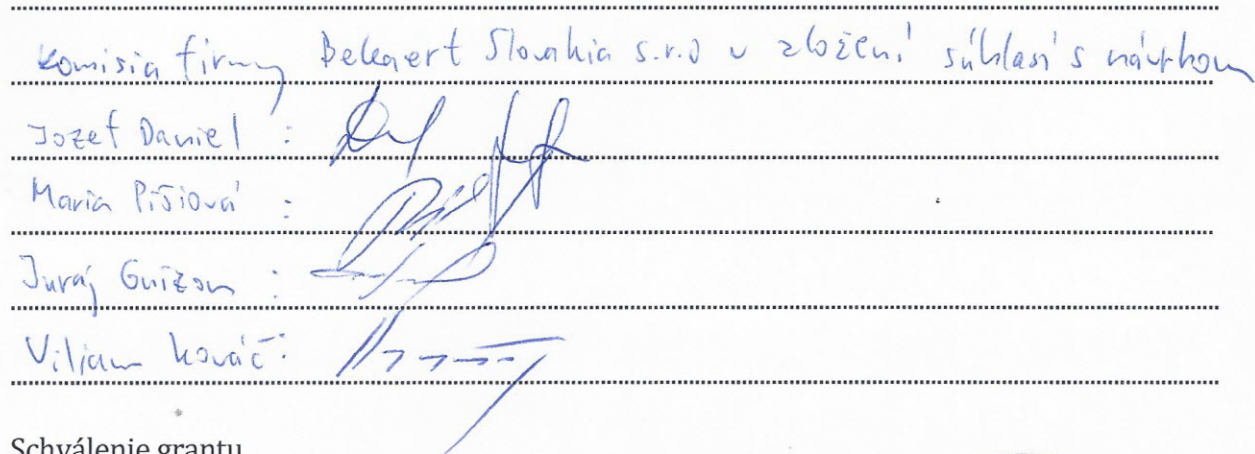 Komisia firmy Bekaert Slovakia s.r.o v zložení súhlasí s návrhom
Jozef Daniel :
Maria Pišiová :
Juraj Gnizom :
Viliam Kováč :
Schválenie grantu